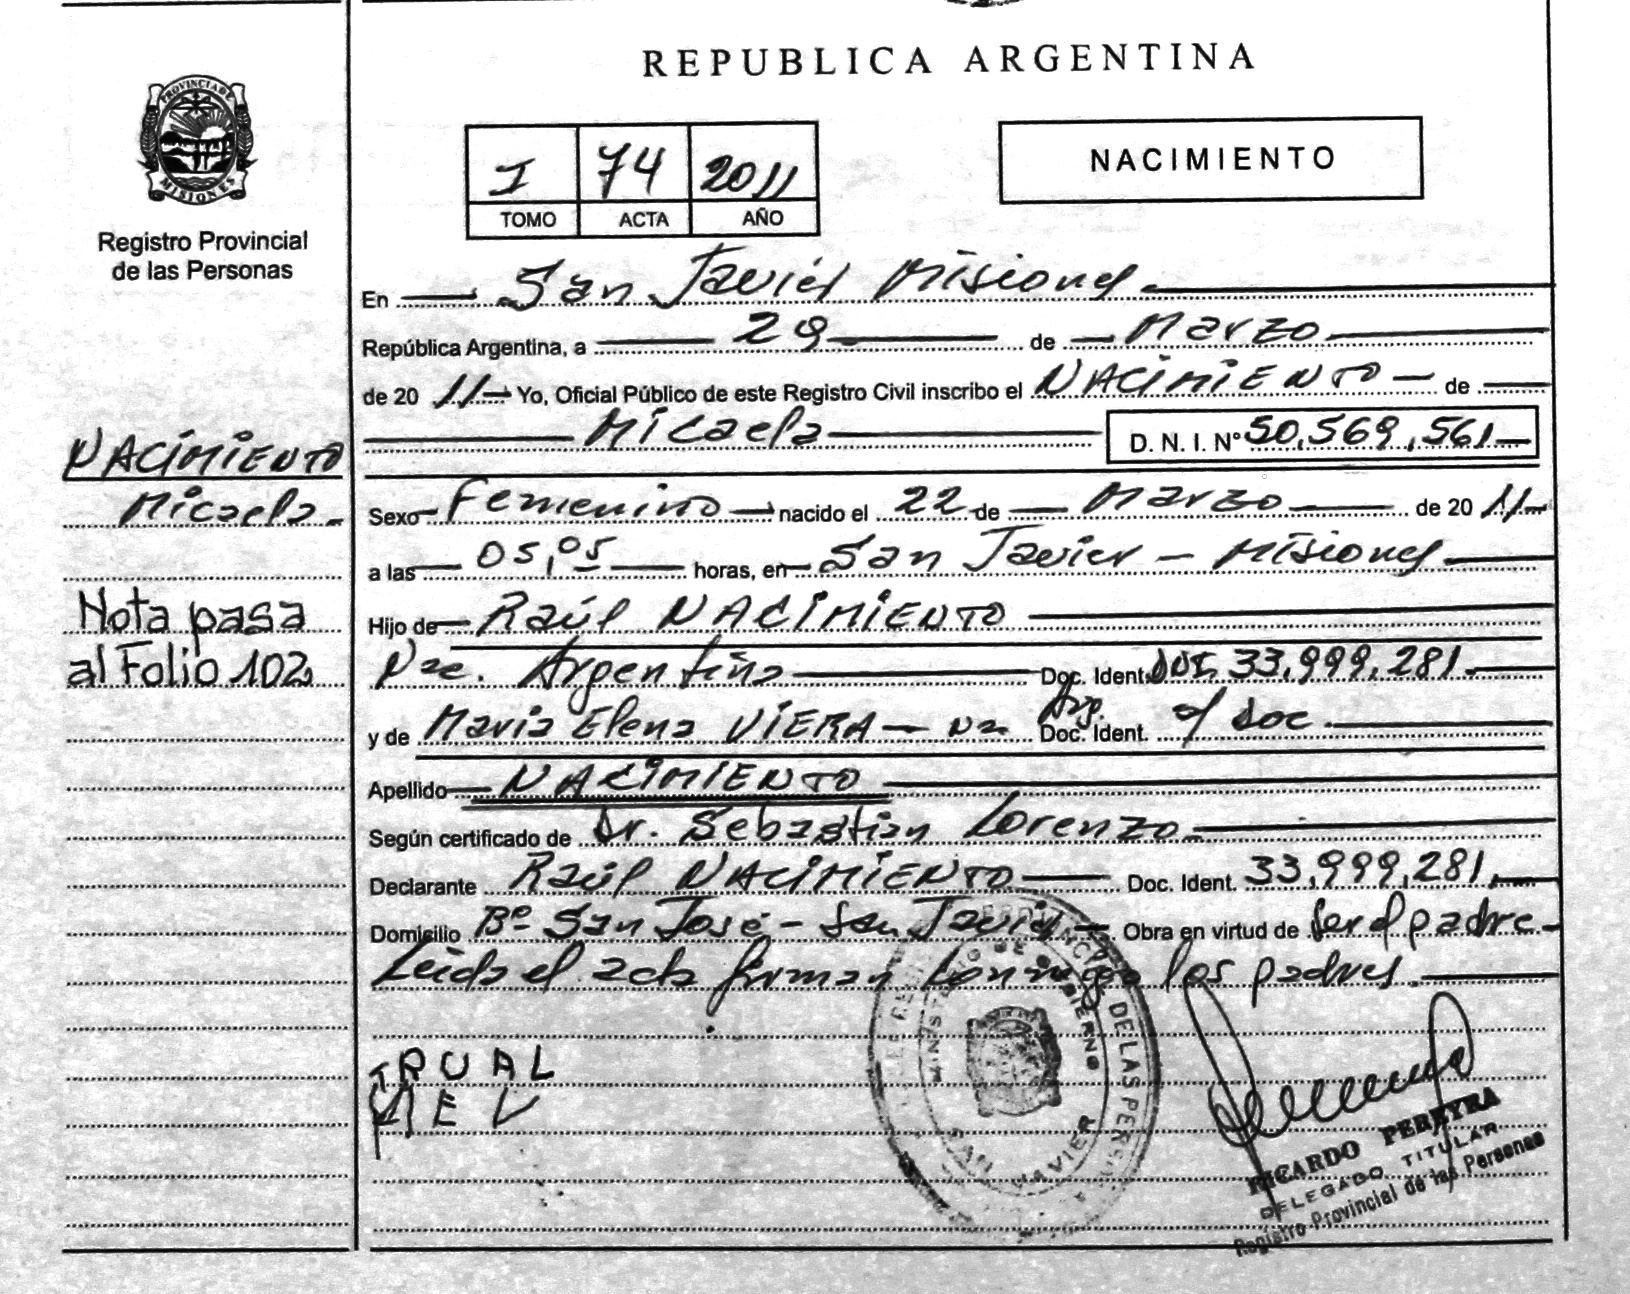 REPUBLICA ARGENTINA
PROVINCIA DE
MISIONES
Registro Provincial
de las Personas
I 74 2011
TOMO ACTA AÑO
NACIMIENTO
En San Javier Misiones
República Argentina, a 29 de Marzo
de 20 11 Yo, Oficial Público de este Registro Civil inscribo el NACIMIENTO de
Micaela D. N. I. Nº 50,569,561
NACIMIENTO
Micaela
Nota pasa
al Folio 102
Sexo Femenino nacido el 22 de Marzo de 20 11
a las 05,05 horas, en San Javier - Misiones
Hijo de Raúl NACIMIENTO
Nac. Argentina Doc. Ident. DNI 33,999,281
y de Maria Elena VIERA - Na Arg. Doc. Ident. s/ doc
Apellido NACIMIENTO
Según certificado de Dr. Sebastian Lorenzo
Declarante Raúl NACIMIENTO Doc. Ident. 33,999,281
Domicilio Bº San José - San Javier Obra en virtud de ser el padre
Leida el acta firman conmigo los padres.
RUAL
MEV
MINISTERIO DE GOBIERNO
DE LAS PERSONAS
SAN JAVIER
RICARDO PEREYRA
DELEGADO TITULAR
Registro Provincial de las Personas